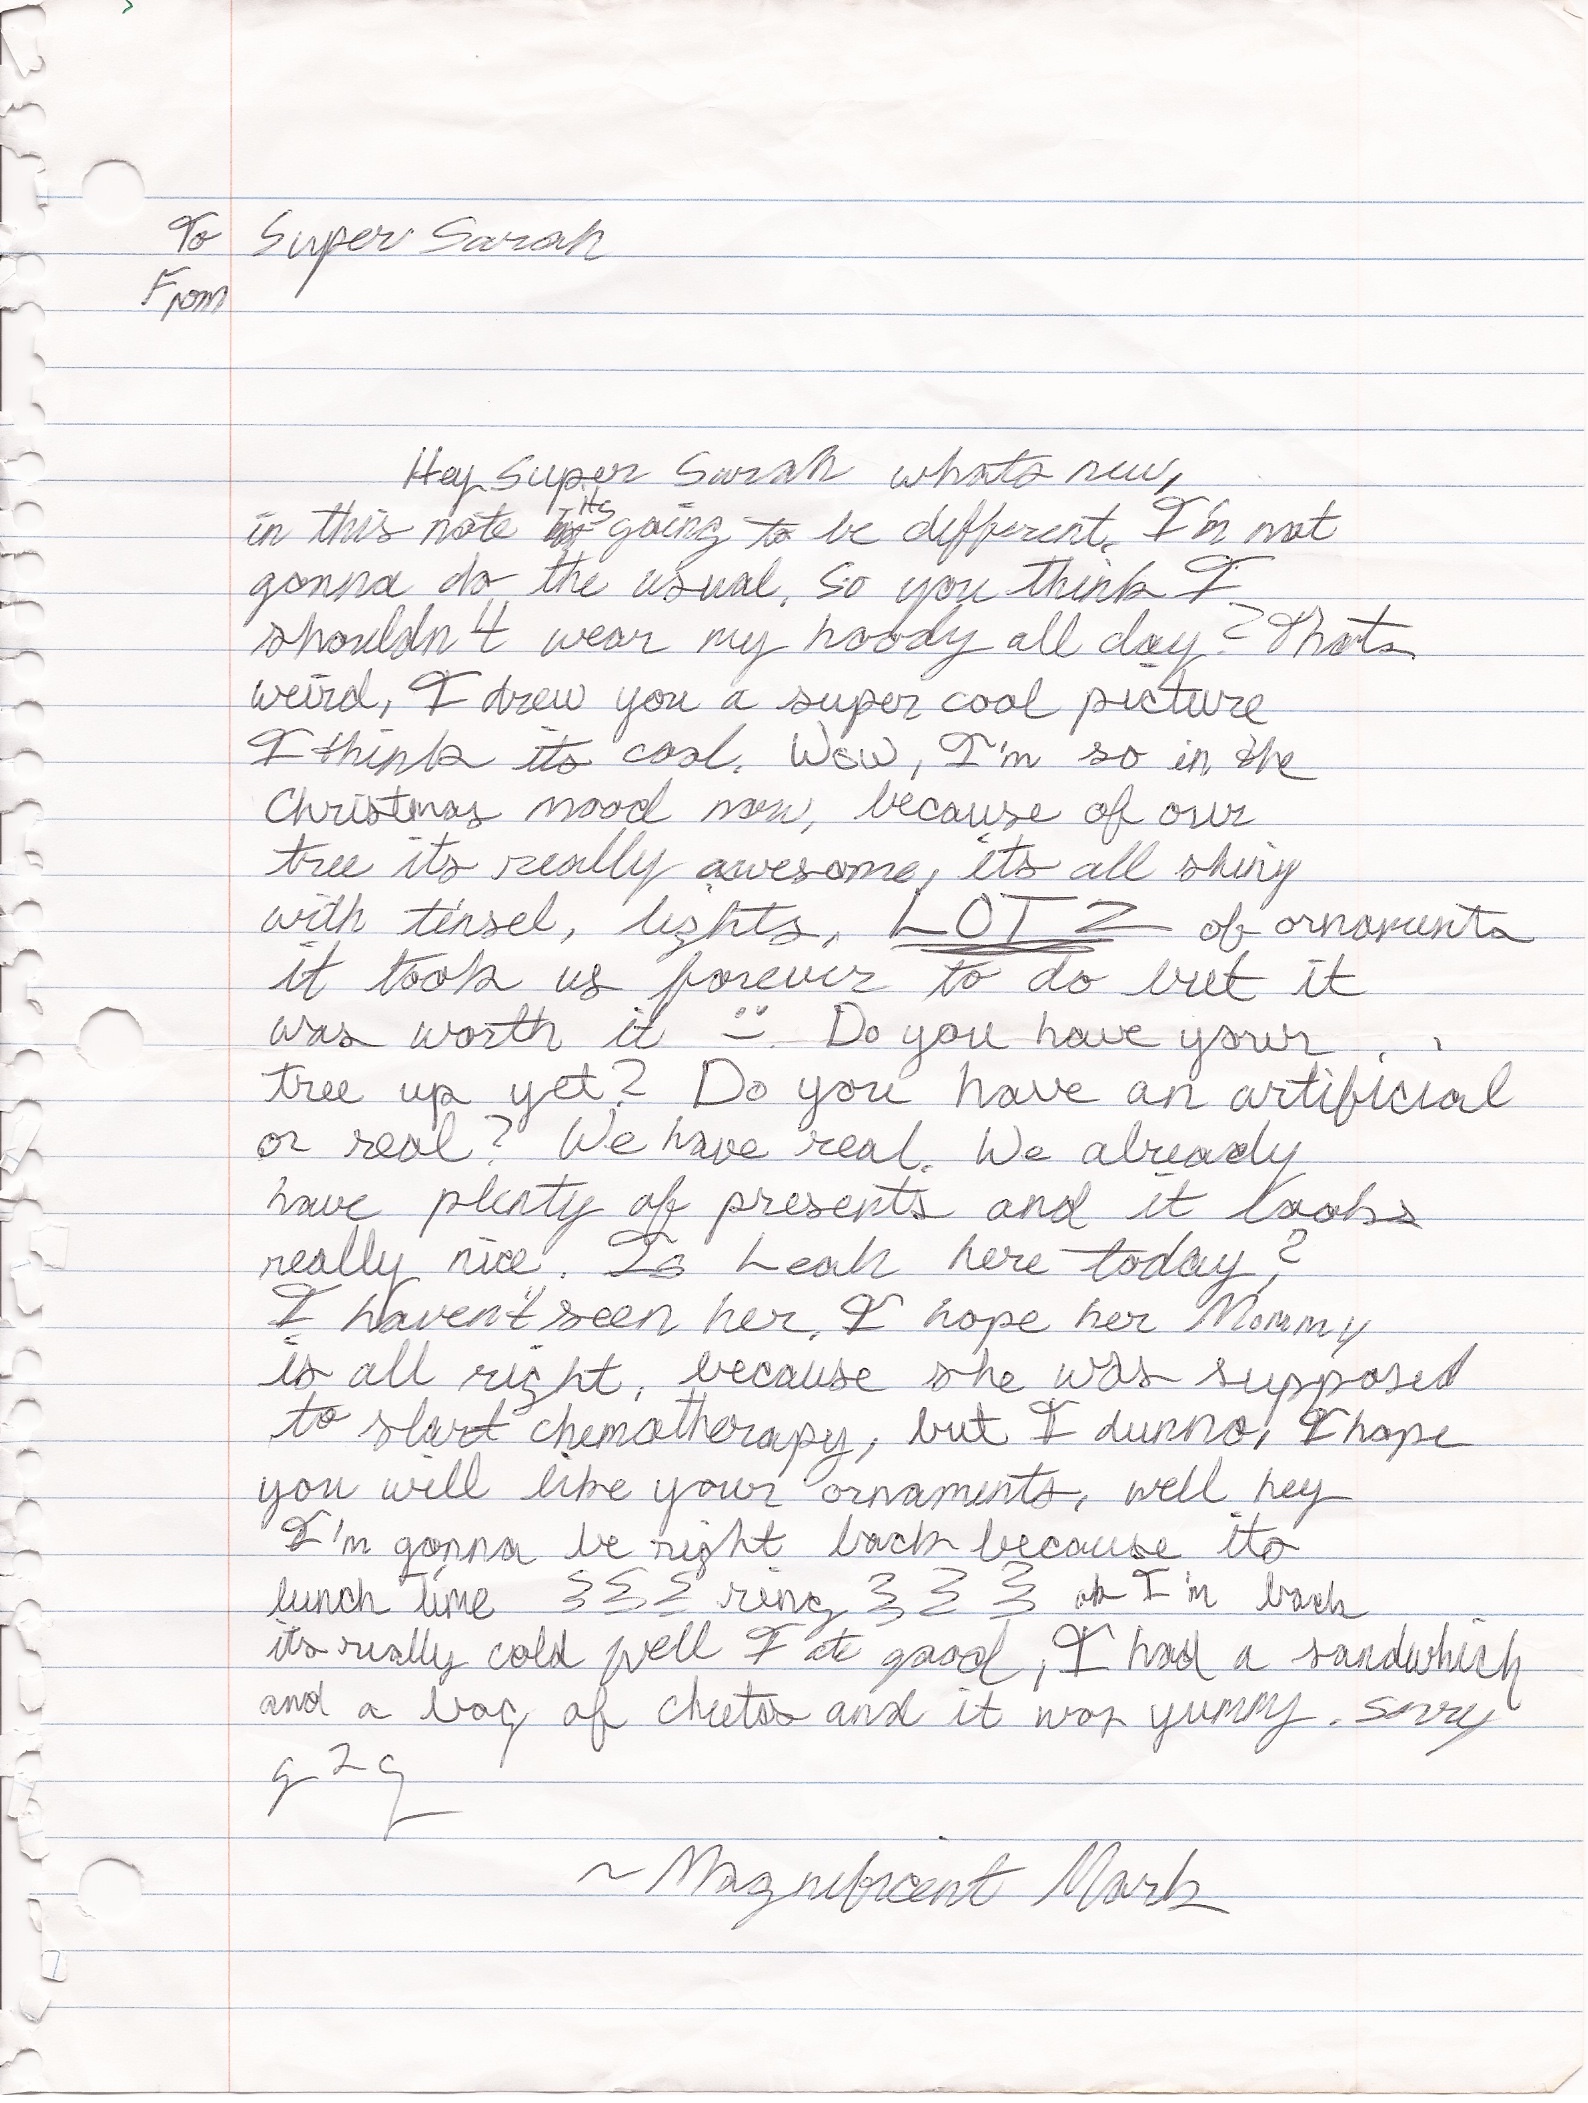 To Super Sarah
From
Hey Super Sarah whats new,
in this note Its going to be different. I'm not
gonna do the usual. So you think I
shouldn't wear my hoody all day? Thats
weird, I drew you a super cool picture
I think its cool. Wow, I'm so in the
Christmas mood now, because of our
tree its really awesome, its all shiny
with tinsel, lights, LOTZ of ornaments
it took us forever to do but it
was worth it Do you have your
tree up yet? Do you have an artificial
or real? We have real. We already
have plenty of presents and it looks
really nice. Is Leah here today?
I haven't seen her. I hope her Mommy
is all right, because she was supposed
to start chemotherapy, but I dunno, I hope
you will like your ornaments, well hey
I'm gonna be right back because its
lunch time ring ok I'm back
its really cold well I ate good, I had a sandwhich
and a bag of cheetos and it was yummy. Sorry
g2g
~Magnificent Mark